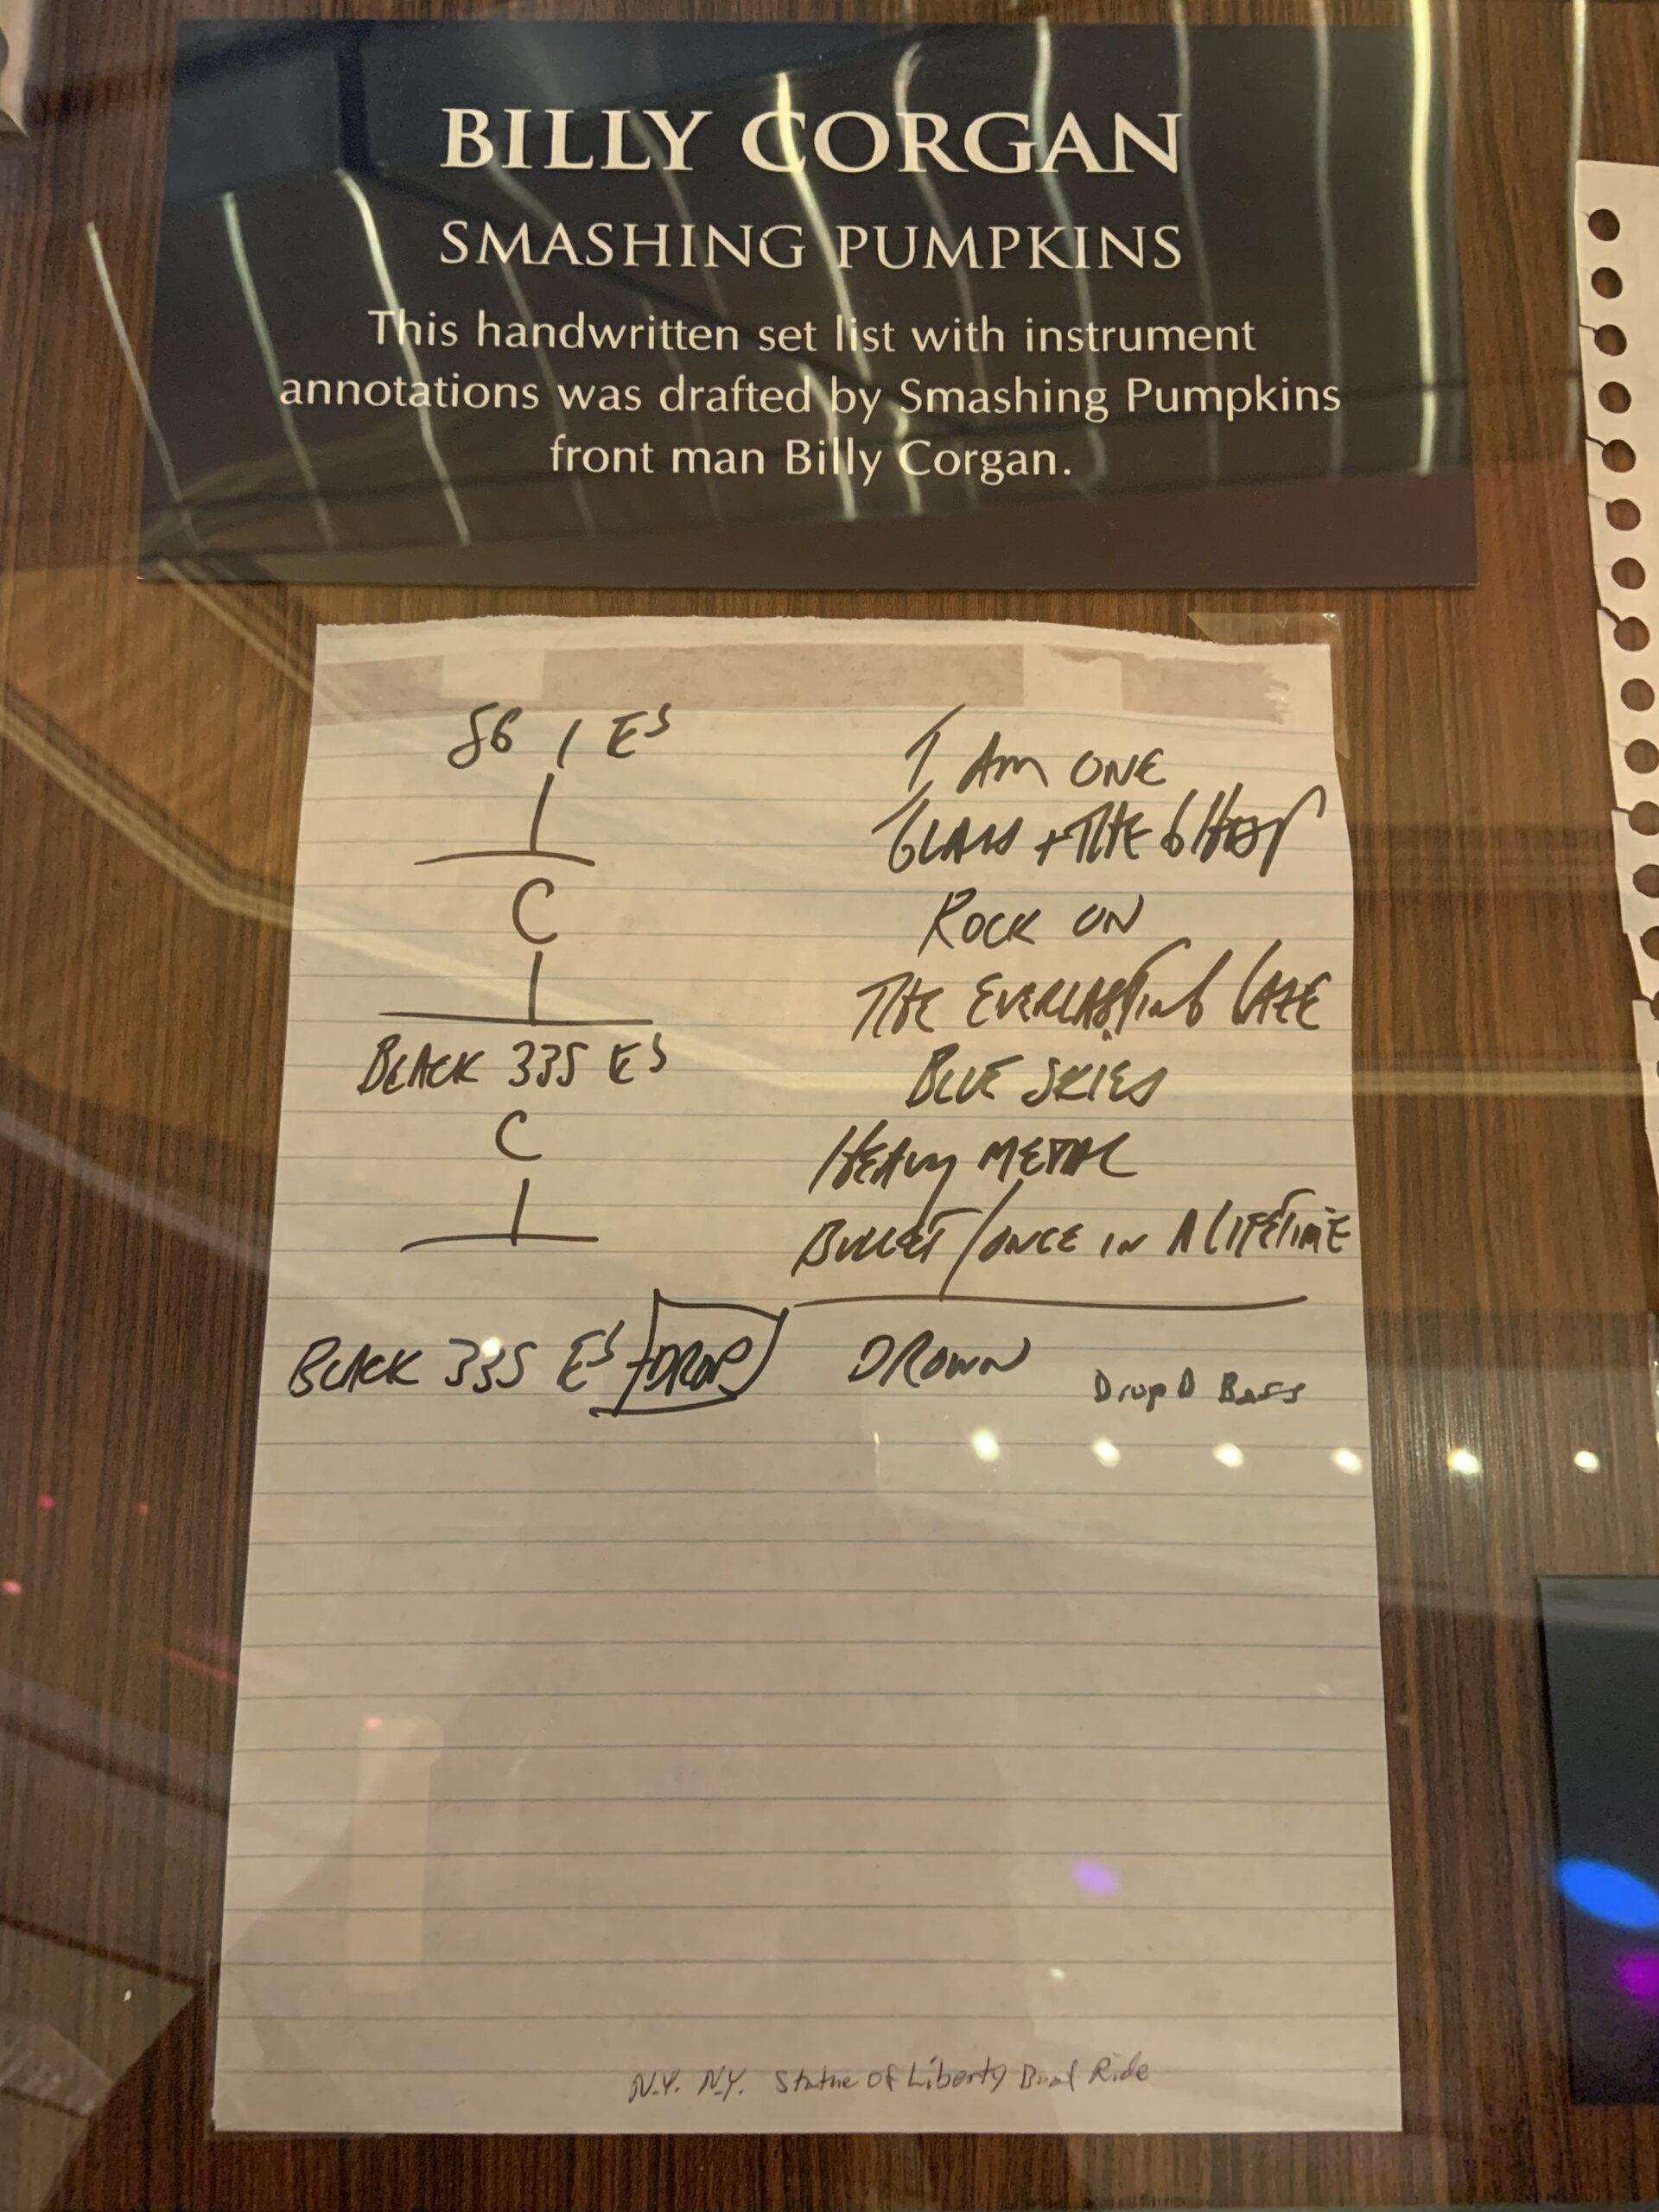 BILLY CORGAN
SMASHING PUMPKINS
This handwritten set list with instrument
annotations was drafted by Smashing Pumpkins
front man Billy Corgan.
I AM ONE
GLASS + THE GHOST
C ROCK ON
THE EVERLASTING GAZE
BLACK 335 E'S BLUE SKIES
C HEAVY METAL
BULLET/ONCE IN A LIFETIME
BLACK 335 E'S + DROP DROWN Drop D Bass
N.Y. N.Y. Statue Of Liberty Boat Ride